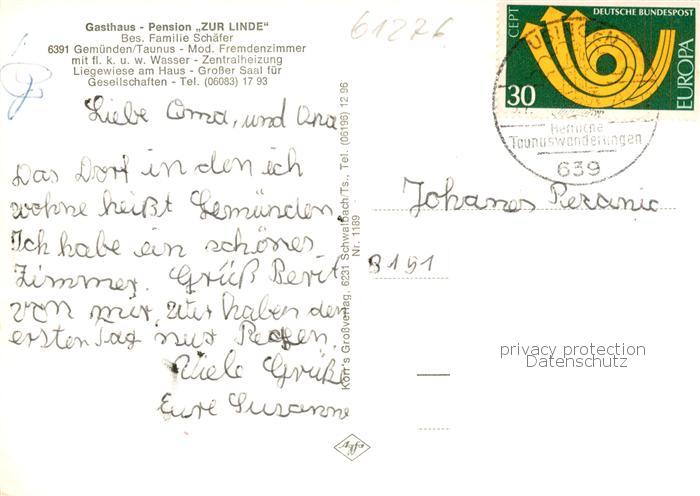 Gasthaus - Pension „ZUR LINDE“
Bes. Familie Schäfer
6391 Gemünden/Taunus - Mod. Fremdenzimmer
mit fl. k. u. w. Wasser - Zentralheizung
Liegewiese am Haus - Großer Saal für
Gesellschaften - Tel. (06083) 17 93
61226
Liebe Oma, und Opa
Das Dorf in den ich
wohne heißt Gemünden.
Ich habe ein schönes
Zimmer. Grüß Berit
von mir, wir haben den
ersten Tag nur Regen.
Viele Grüße
Eure Susanne
Korr's Großverlag, 6231 Schwalbach/Ts., Tel. (06196) 12 96
Nr. 1189
Agfa
CEPT
DEUTSCHE BUNDESPOST
EUROPA
30
USINGEN
Herrliche
Taunuswanderungen
639
Johanes
8191
privacy protection
Datenschutz